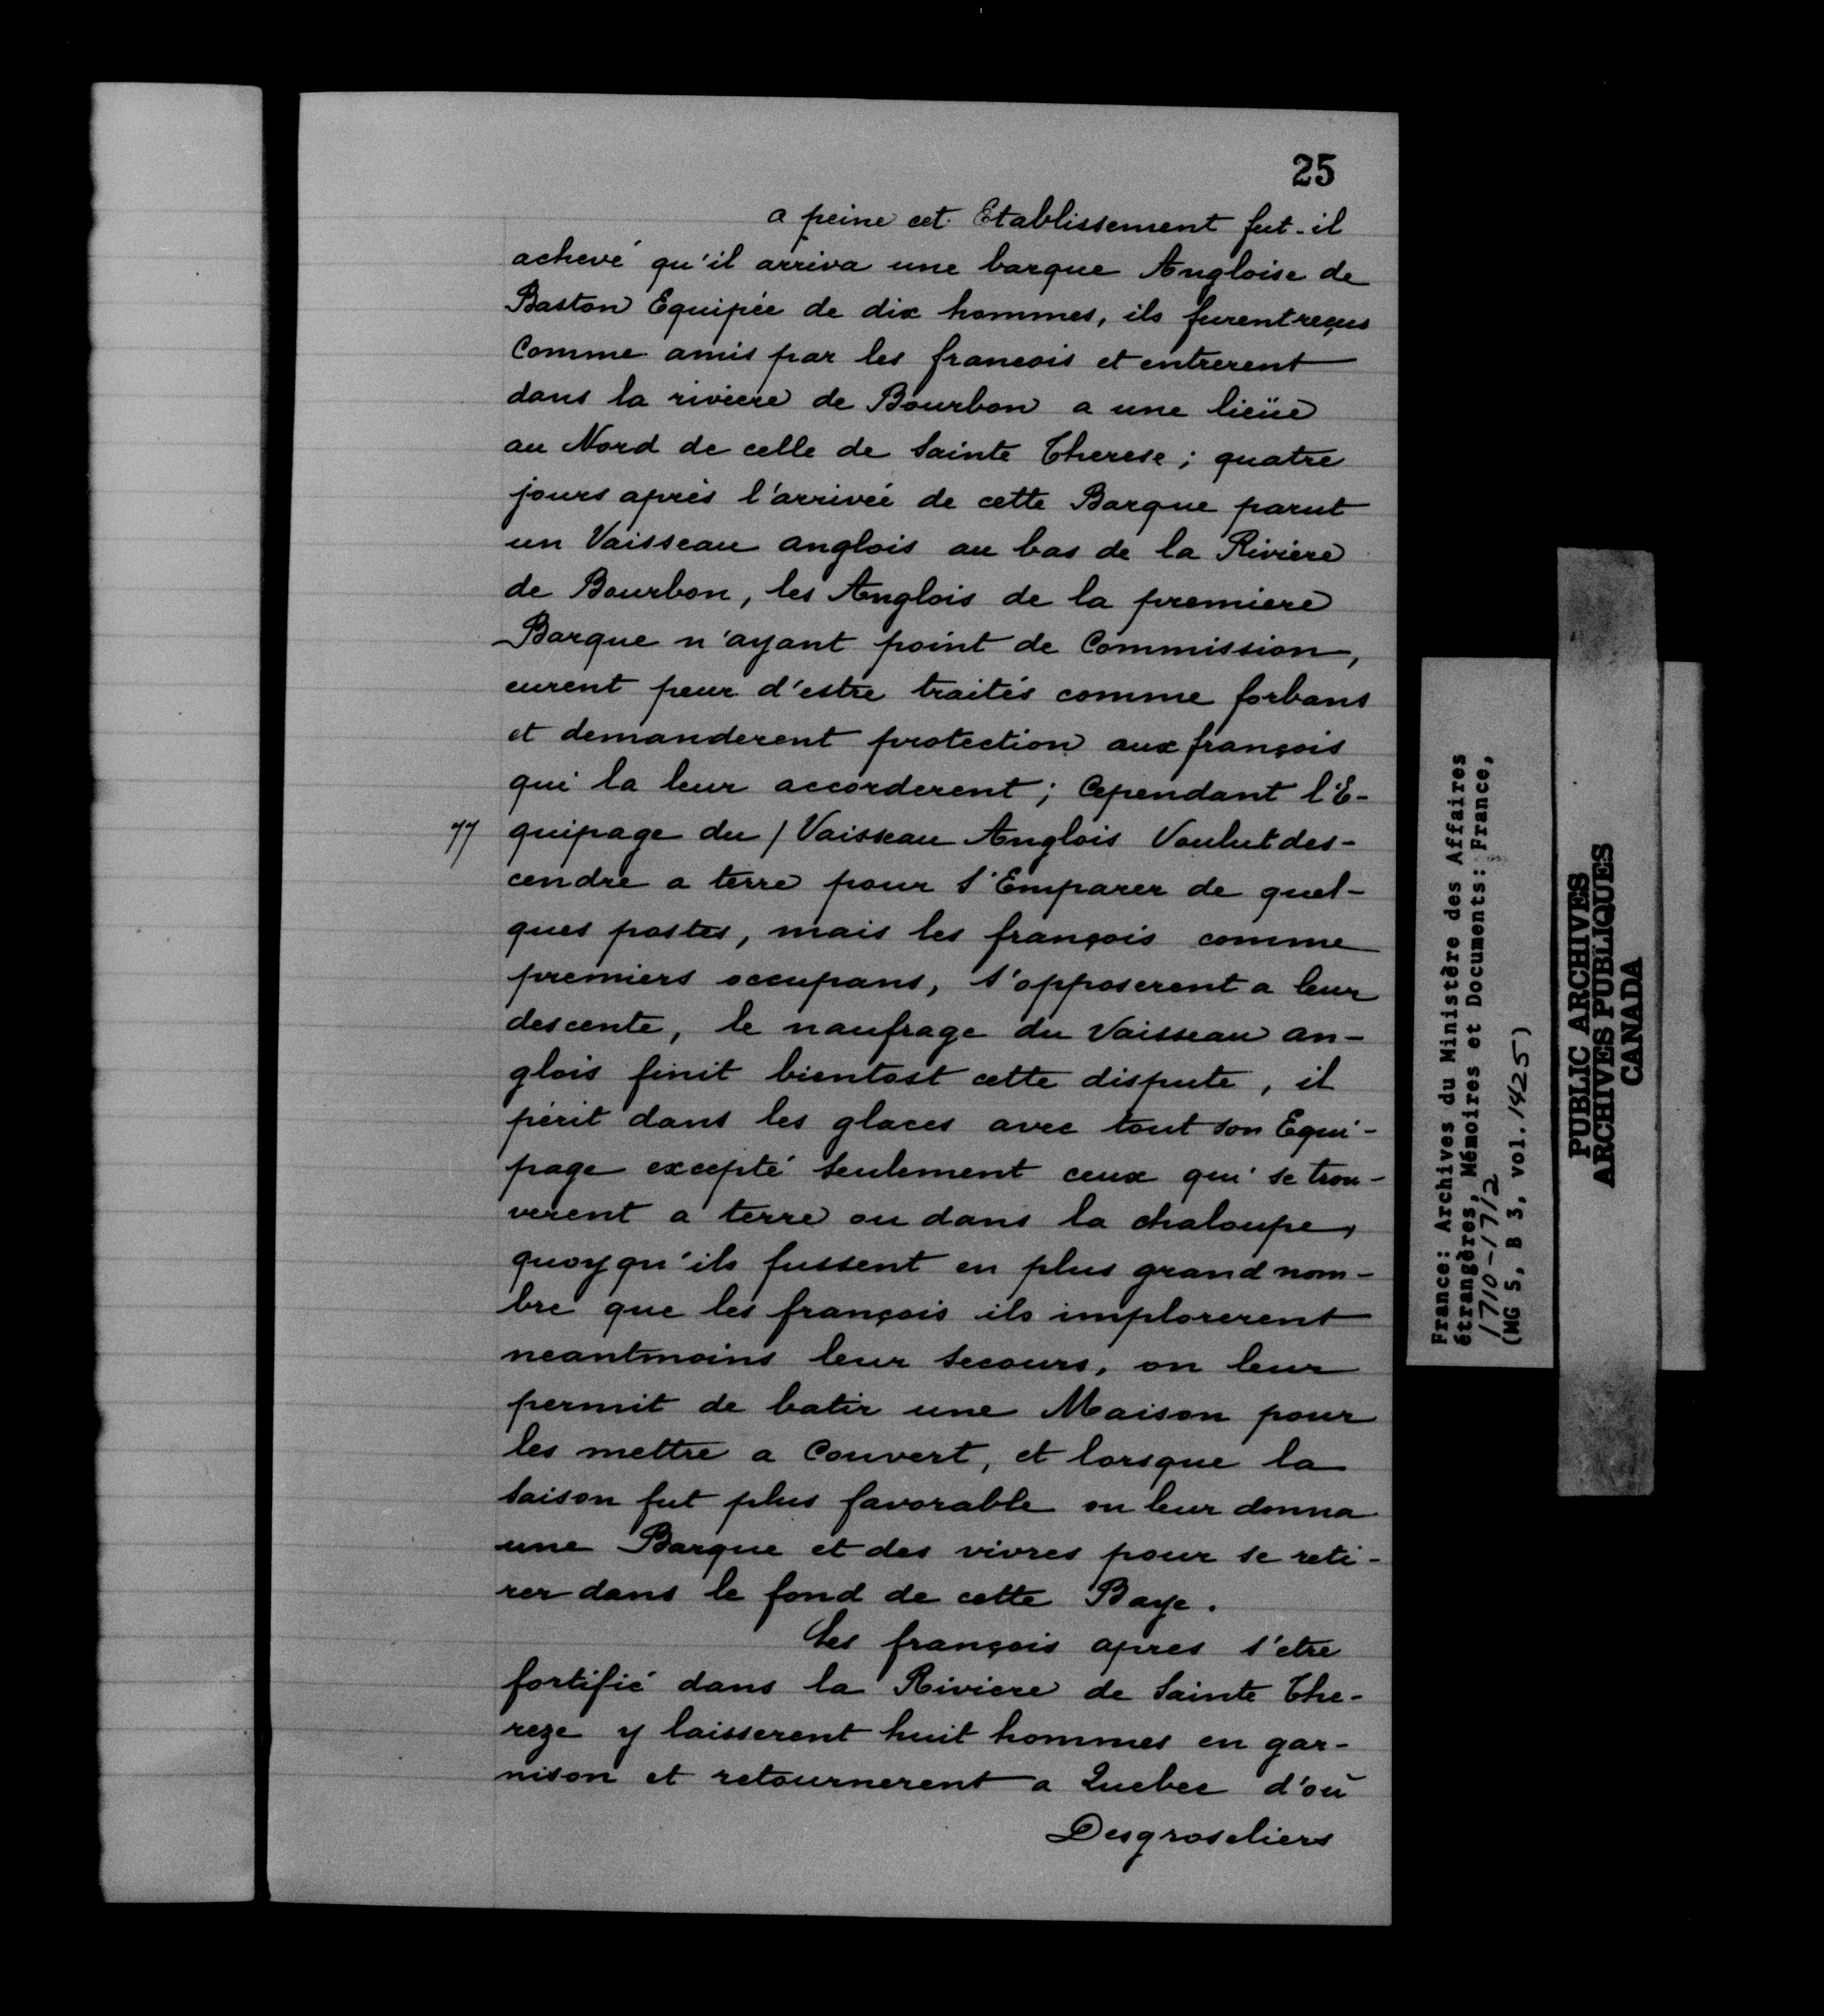 25
a peine cet Etablissement fut-il
achevé qu'il arriva une barque Angloise de
Baston Equipée de dix hommes, ils furent reçus
Comme amis par les francois et entrerent
dans la riviere de Bourbon a une lieüe
au Nord de celle de Sainte Therese; quatre
jours après l'arrivée de cette Barque parut
un Vaisseau anglois au bas de la Riviere
de Bourbon, les Anglois de la premiere
Barque n'ayant point de Commission,
eurent peur d'estre traités comme forbans
et demanderent protection aux françois
qui la leur accorderent; Cependant l'E-
77 quipage du / Vaisseau Anglois Voulut des-
cendre a terre pour s'Emparer de quel-
ques postes, mais les françois comme
premiers occupans, s'opposerent a leur
descente, le naufrage du Vaisseau an-
glois finit bientost cette dispute, il
périt dans les glaces avec tout son Equi-
page excepté seulement ceux qui se trou-
verent a terre ou dans la chaloupe,
quoyqu'ils fussent en plus grand nom-
bre que les françois ils implorerent
neantmoins leur secours, on leur
permit de batir une Maison pour
les mettre a Couvert, et lorsque la
saison fut plus favorable on leur donna
une Barque et des vivres pour se reti-
rer dans le fond de cette Baye.
Les françois apres s'etre
fortifié dans la Riviere de Sainte The-
reze y laisserent huit hommes en gar-
nison et retournerent a Quebec d'où
Desgroseliers
France: Archives du Ministère des Affaires
étrangères, Mémoires et Documents: France,
1710-1712
(MG 5, B 3, vol. 1425)
PUBLIC ARCHIVES
ARCHIVES PUBLIQUES
CANADA